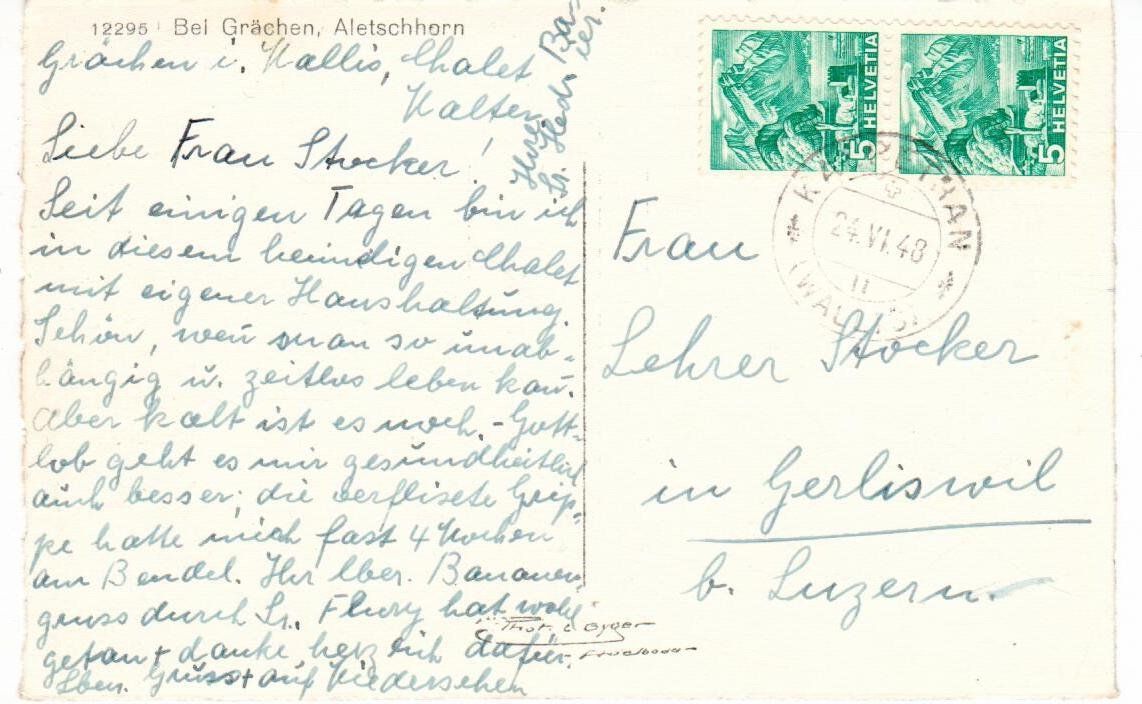 12295 Bei Grächen, Aletschhorn
Grächen i. Wallis, Chalet
Walter.
Liebe Frau Stocker!
Seit einigen Tagen bin ich
in diesem heimeligen Chalet
mit eigener Haushaltung.
Schön, wen̄ man so unab-
hängig u. zeitlos leben kan̄.
Aber kalt ist es noch. - Gott-
lob geht es mir gesundheitlich
auch besser; die verflixte Grip-
pe hatte mich fast 4 Wochen
am Bendel. Ihr lber. Bananen
gruss durch Sr. Flury hat wohl
getan + danke herzlich dafür.
Lben. Gruss + auf Wiedersehen
Ihre
Sr. Hedi Ba-
ier.
HELVETIA 5
HELVETIA 5
24.VI.48
11
(WALLIS)
Frau
Lehrer Stocker
in Gerliswil
b. Luzern.
Phot. E. Gyger
Adelboden